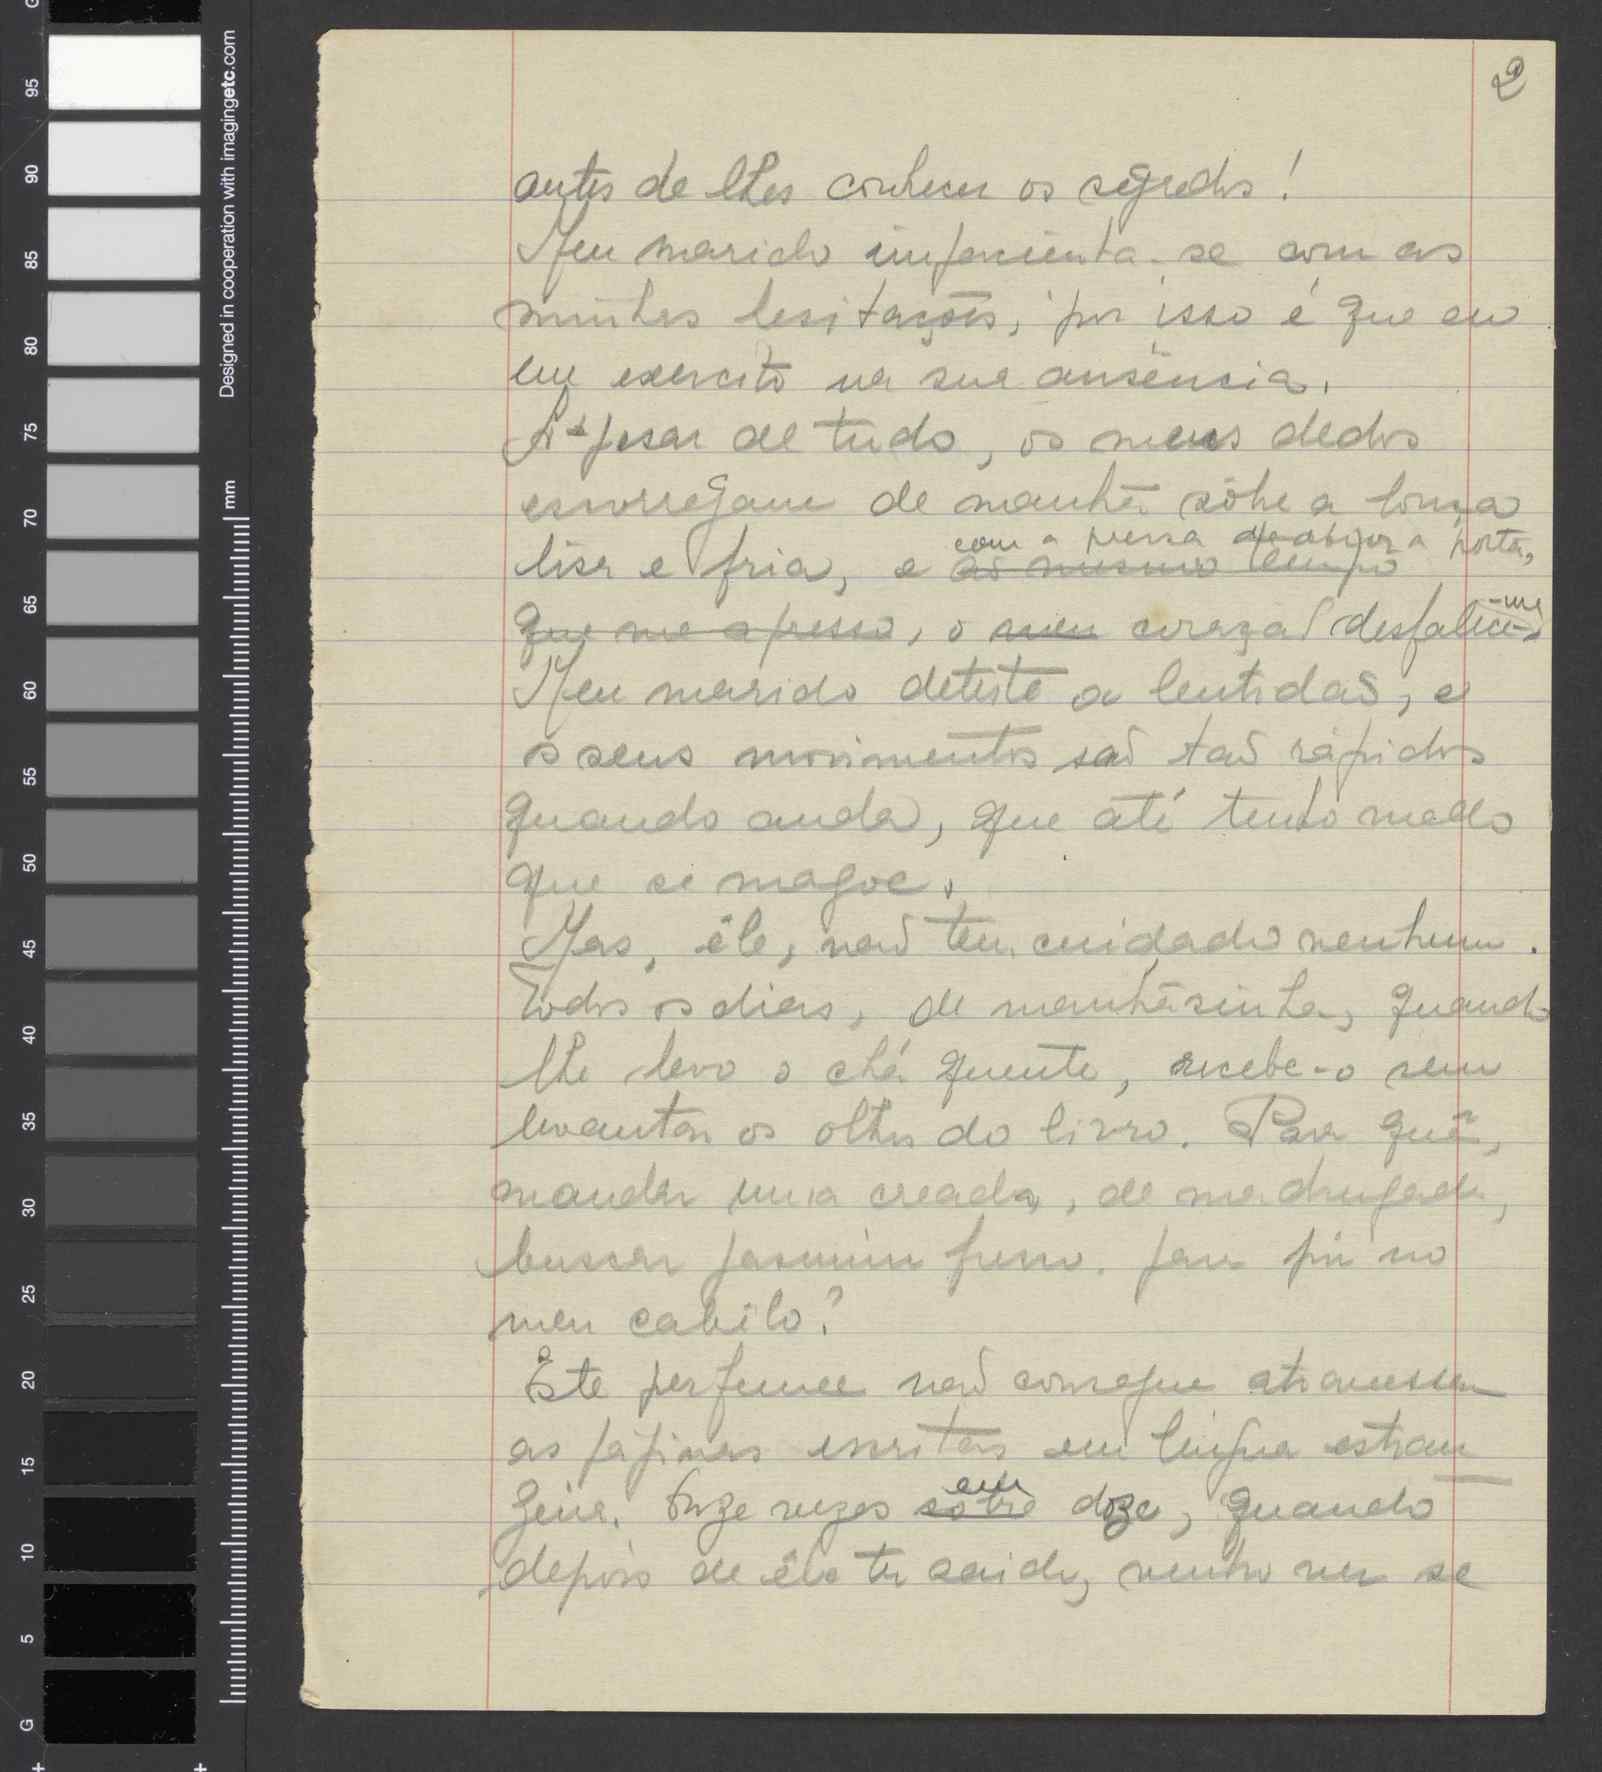 2
antes de lhes conhecer os segredos!
Meu marido impacienta-se com as
minhas hesitações, por isso é que eu
me exercito na sua ausência.
A-pesar de tudo, os meus dedos
escorregam de manhã sôbre a louça
com a pressa de abrir a porta,
lisa e fria, e ao mesmo tempo
que me apresso, o meu coração desfalece-me
Meu marido detesta a lentidão, e
os seus movimentos são tão rápidos
quando anda, que até tenho medo
que se magoe.
Mas, êle, não tem cuidado nenhum.
Todos os dias, de manhãsinha, quando
lhe levo o chá quente, recebe-o sem
levantar os olhos do livro. Para quê,
mandar uma creada, de madrugada,
buscar jasmim fresco para pôr no
meu cabêlo?
Êste perfume não consegue atravessar
as páginas escritas em língua estran
geira. Onze vezes sôbre em doze, quando
depois de êle ter saido, venho ver se
Designed in cooperation with imagingetc.com
mm
G
95
90
85
80
75
70
65
60
55
50
45
40
35
30
25
20
15
10
5
G